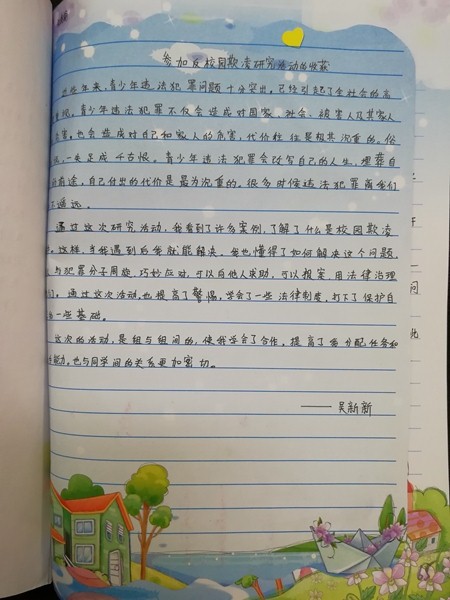 参加反校园欺凌研究活动的收获
近些年来,青少年违法犯罪问题十分突出,已经引起了全社会的高
重视。青少年违法犯罪不仅会造成对国家、社会、被害人及其家人
危害,也会造成对自己和家人的危害,代价往往是极其沉重的。俗
说,一失足成千古恨。青少年违法犯罪会改写自己的人生,埋葬自
前途,自己付出的代价是最为沉重的。很多时候违法犯罪离我们
不遥远。
通过这次研究活动,我看到了许多案例,了解了什么是校园欺凌
这样,当我遇到后我就能解决。我也懂得了如何解决这个问题,
与犯罪分子周旋,巧妙应对,可以向他人求助,可以报案,用法律治理
们。通过这次活动,也提高了警惕,学会了一些法律制度,打下了保护自
一些基础。
这次的活动,是组与组间的,使我学会了合作,提高了我分配任务和
能力,也与同学间的关系更加密切。
——吴新新
问